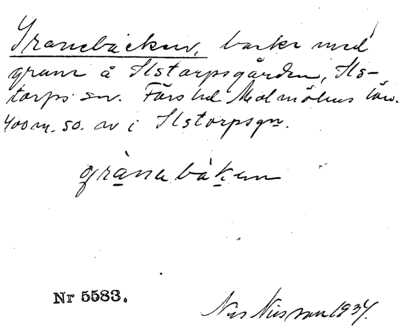 Granebacken, backe med
gran å Ilstorpsgården, Ils-
torps sn. Färs hd Malmöhus län.
400 m. so. av i Ilstorpsgn.
granebàken
Nr 5583.
Nils Nilsson 1934.